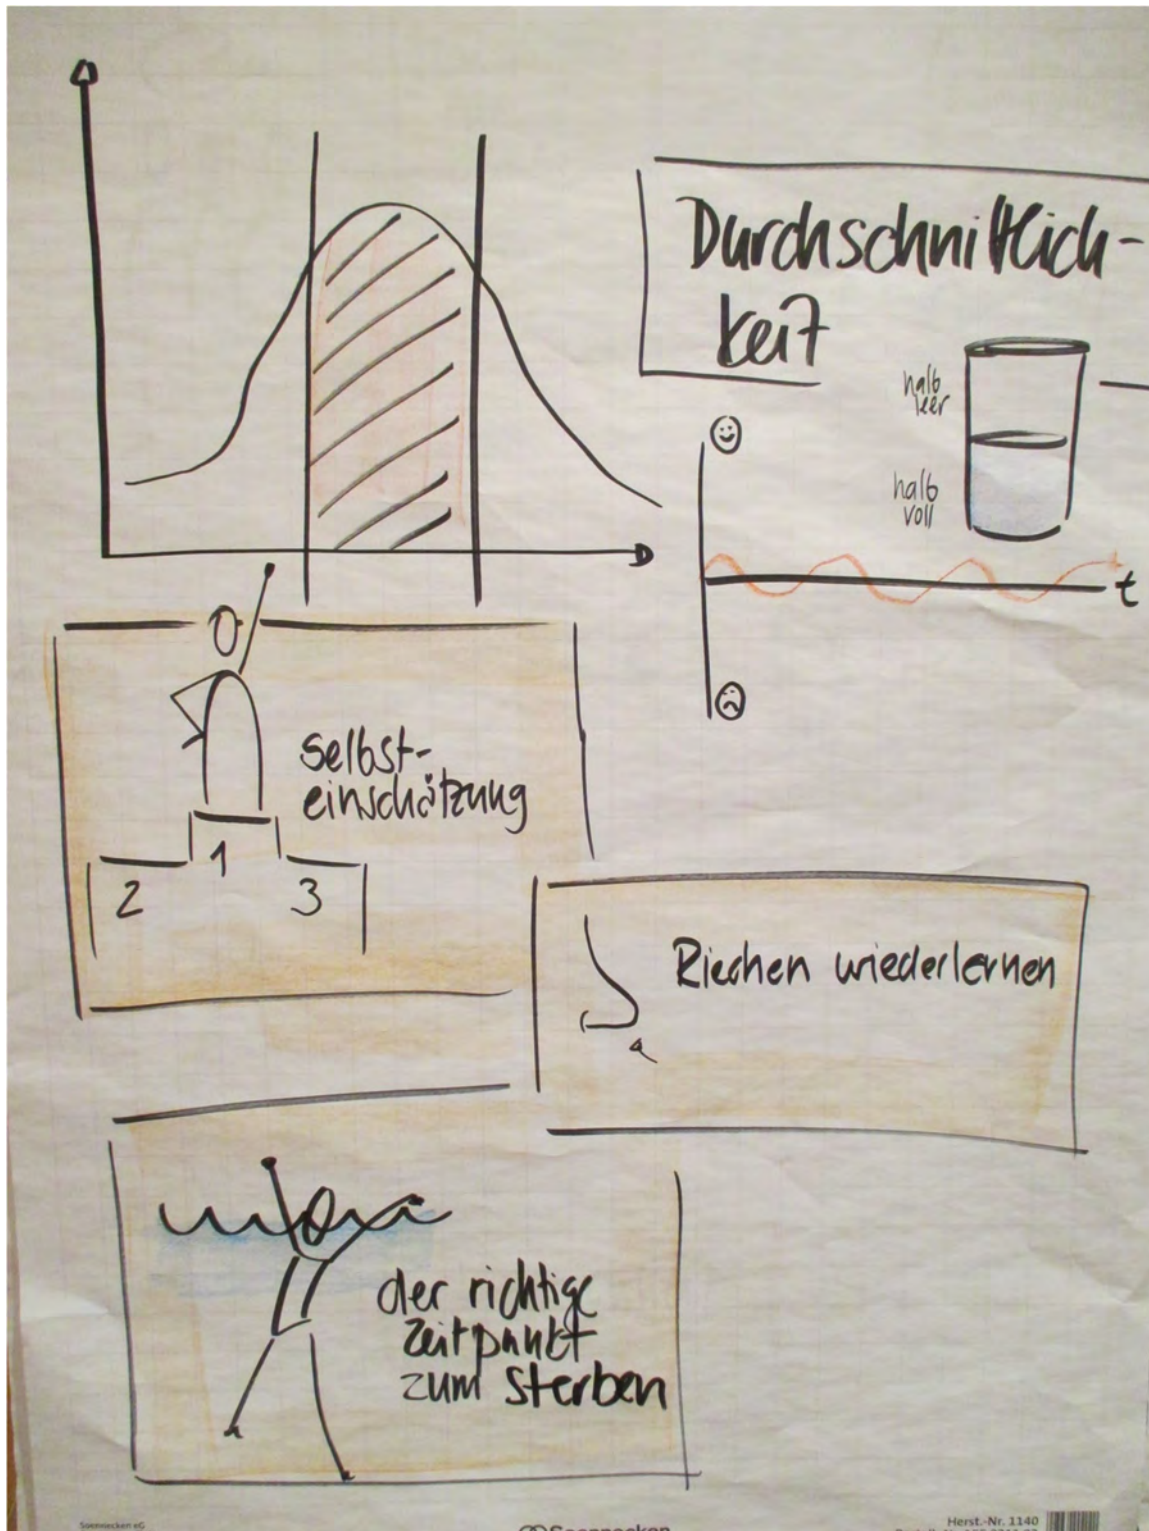 Durchschnittlich-
keit
halb
leer
halb
voll
t
Selbst-
einschätzung
1
2
3
Riechen wiederlernen
der richtige
Zeitpunkt
zum Sterben
Soennecken eG
Soennecken
Herst.-Nr. 1140